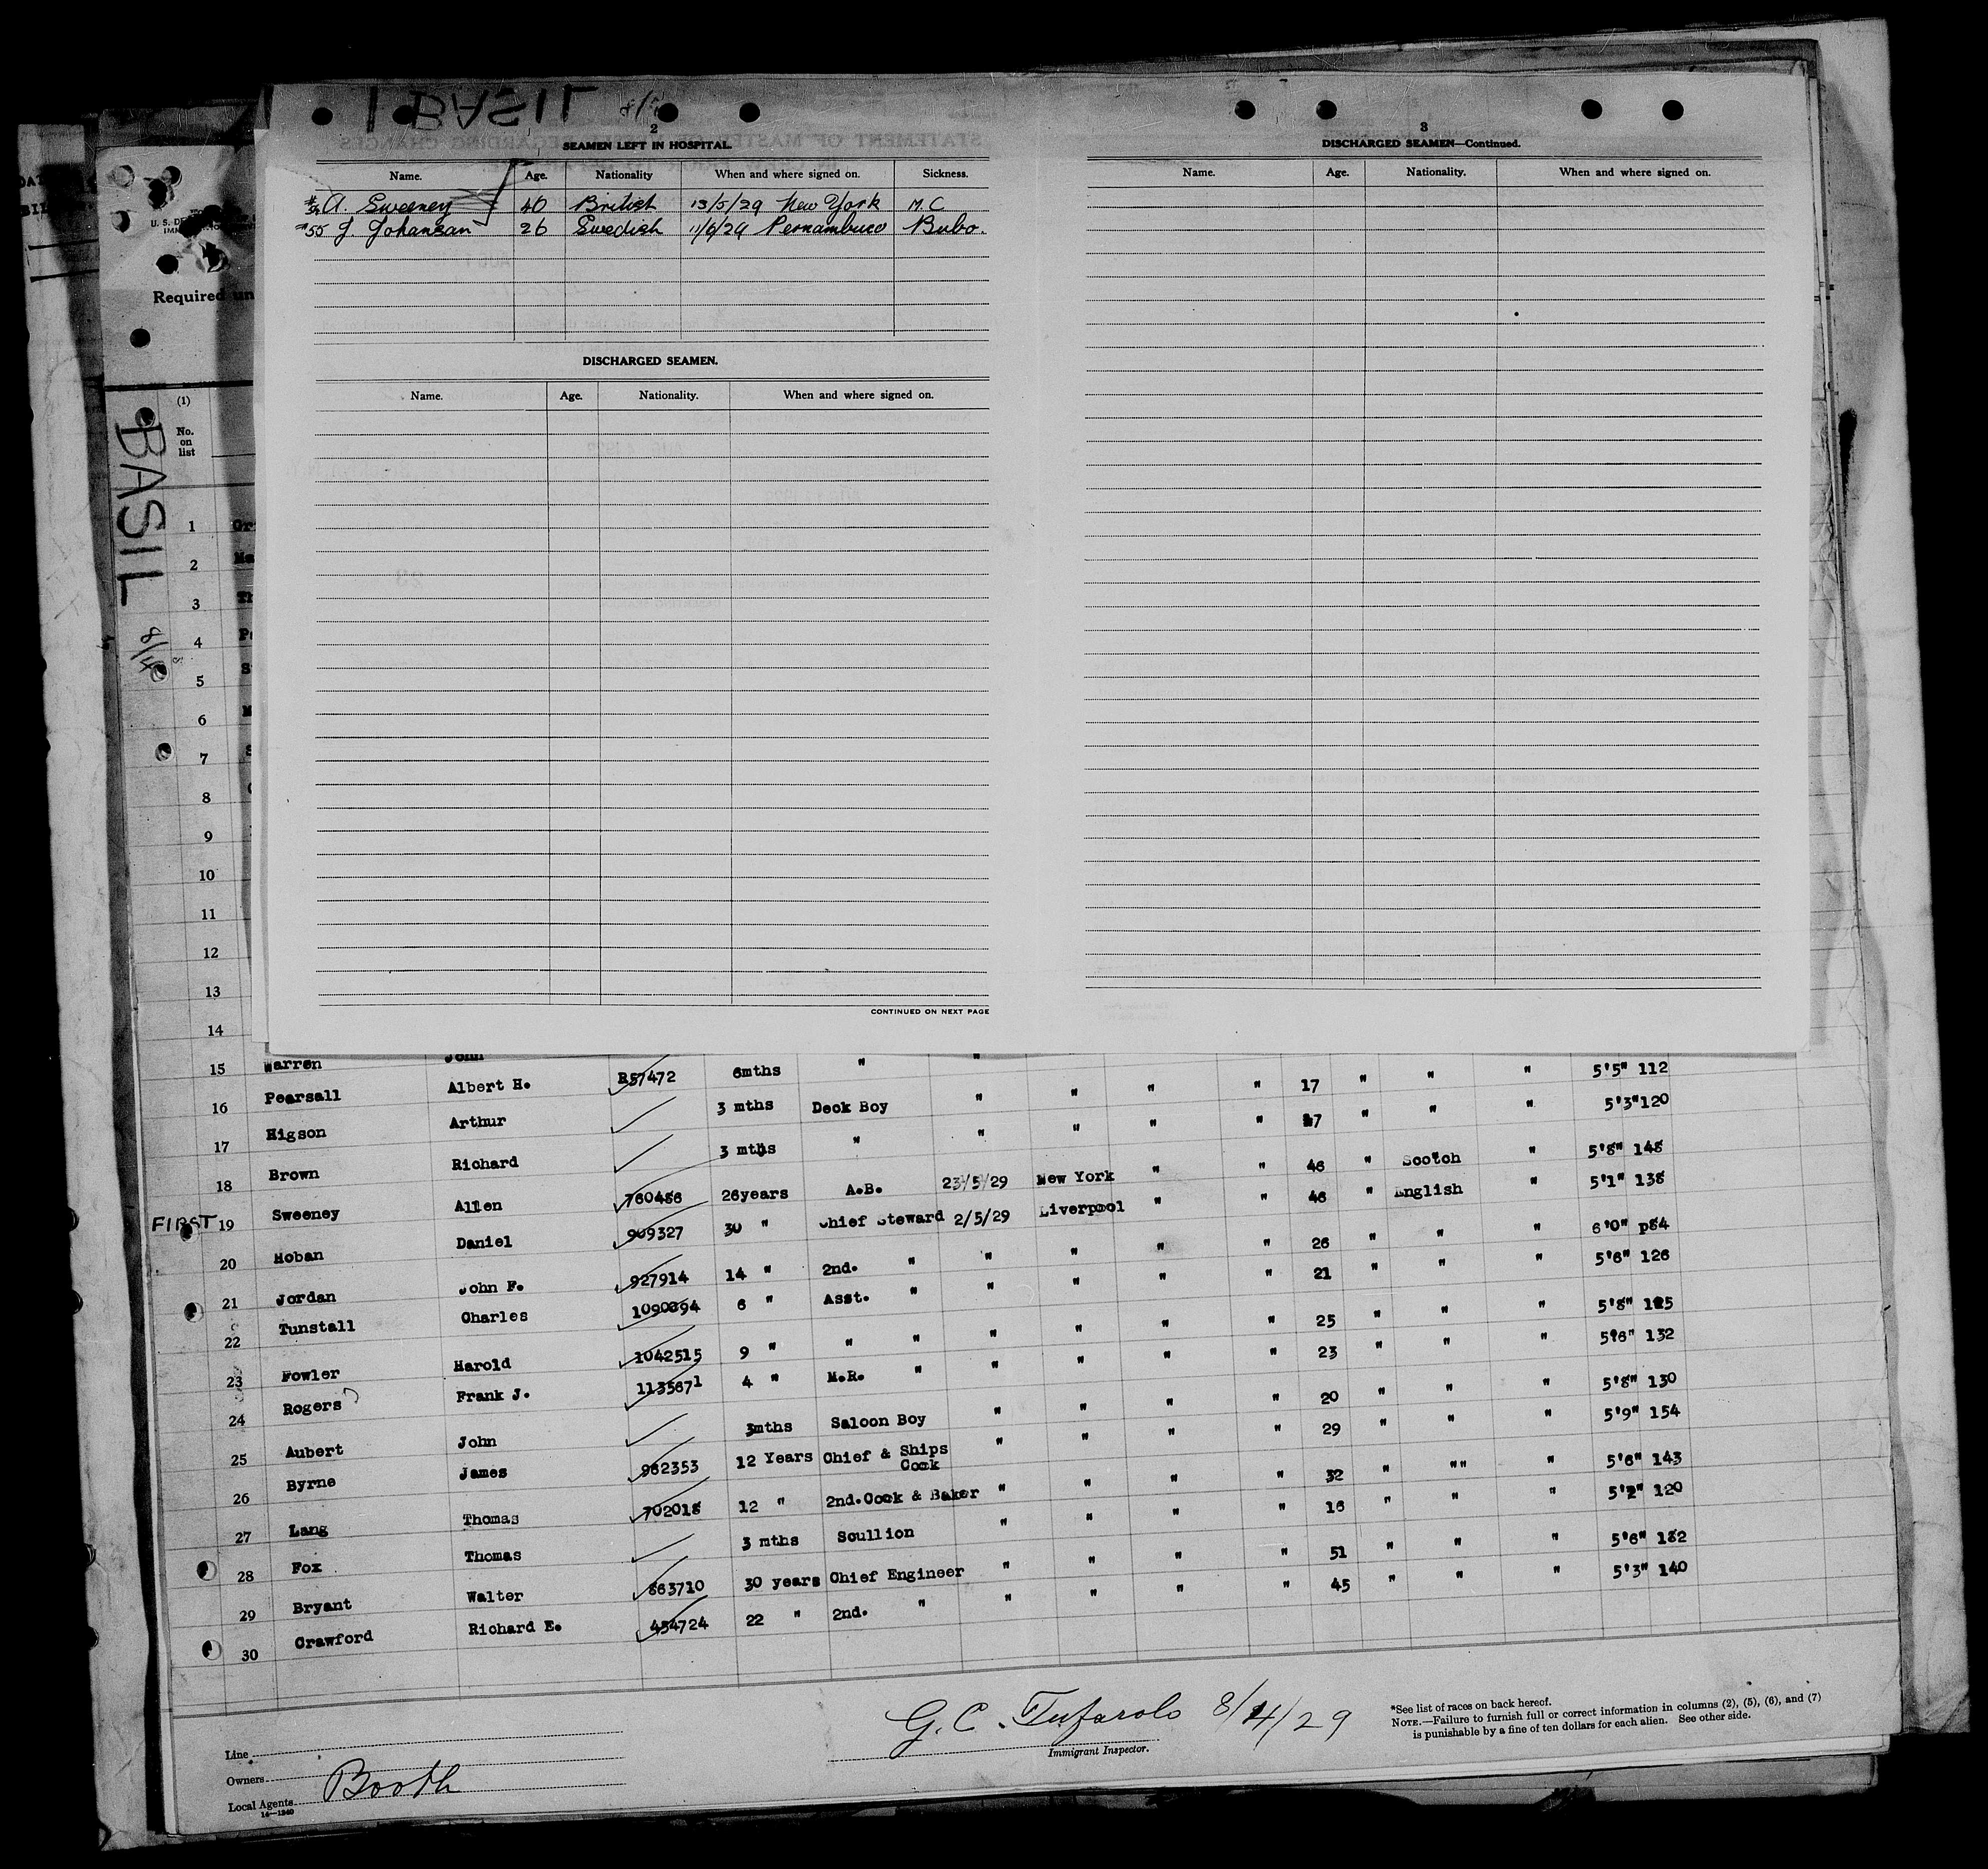 BASIL
2
SEAMEN LEFT IN HOSPITAL.
Name. Age. Nationality When and where signed on. Sickness.
A. Sweeney 40 British 13/5/29 New York M.C
#55 J. Johansan 26 Swedish 11/6/29 Pernambuco Bubo.
DISCHARGED SEAMEN.
Name. Age. Nationality. When and where signed on.
CONTINUED ON NEXT PAGE
3
DISCHARGED SEAMEN—Continued.
Name. Age. Nationality. When and where signed on.
Required
(1)
No.
on
list
BASIL 8/4
1
2
3
4
5
6
7
8
9
10
11
12
13
14
15 Warren John
Pearsall Albert H. R57472 6mths " " " " " 17 " " " 5'5" 112
16 Higson Arthur 3 mths Deck Boy " " " " 17 " " " 5'3" 120
17 Brown Richard 3 mths " "
18 Sweeney Allen 760456 26years A.B. 23/5/29 New York " " 46 " Scotch " 5'8" 148
FIRST 19 Hoban Daniel 909327 30 " Chief Steward 2/5/29 Liverpool " " 46 " English " 5'1" 138
20 Jordan John F. 927914 14 " 2nd. " " " " " 26 " " " 6'0"
21 Tunstall Charles 6 " Asst. " " " " " 21 " " " 5'6" 126
22 Fowler Harold 1042515 9 " " " " " " " 25 " " " 5'8"
23 Rogers Frank J. 4 " M.R. " " " " " 23 " " " 5'6" 132
24 Aubert John 3mths Saloon Boy " " " " 20 " " " 5'8" 130
25 Byrne James 962353 12 Years Chief & Ships Cook " " " " 29 " " " 5'9" 154
26 Lang Thomas 702018 12 " 2nd.Cook & Baker " " " " 32 " "" " 5'6" 143
27 Fox Thomas 3 mths Scullion " " " " 16 " " " 5'2" 120
28 Bryant Walter 863710 30 years Chief Engineer " " " " 51 " " " 5'6" 182
29 Crawford Richard E. 454724 22 " 2nd. " " " " " 45 " " " 5'3" 140
30
Line
Owners
Local Agents Booth
14—1240
G. C. Tufarolo 8/4/29
Immigrant Inspector.
*See list of races on back hereof.
NOTE.—Failure to furnish full or correct information in columns (2), (5), (6), and (7)
is punishable by a fine of ten dollars for each alien. See other side.